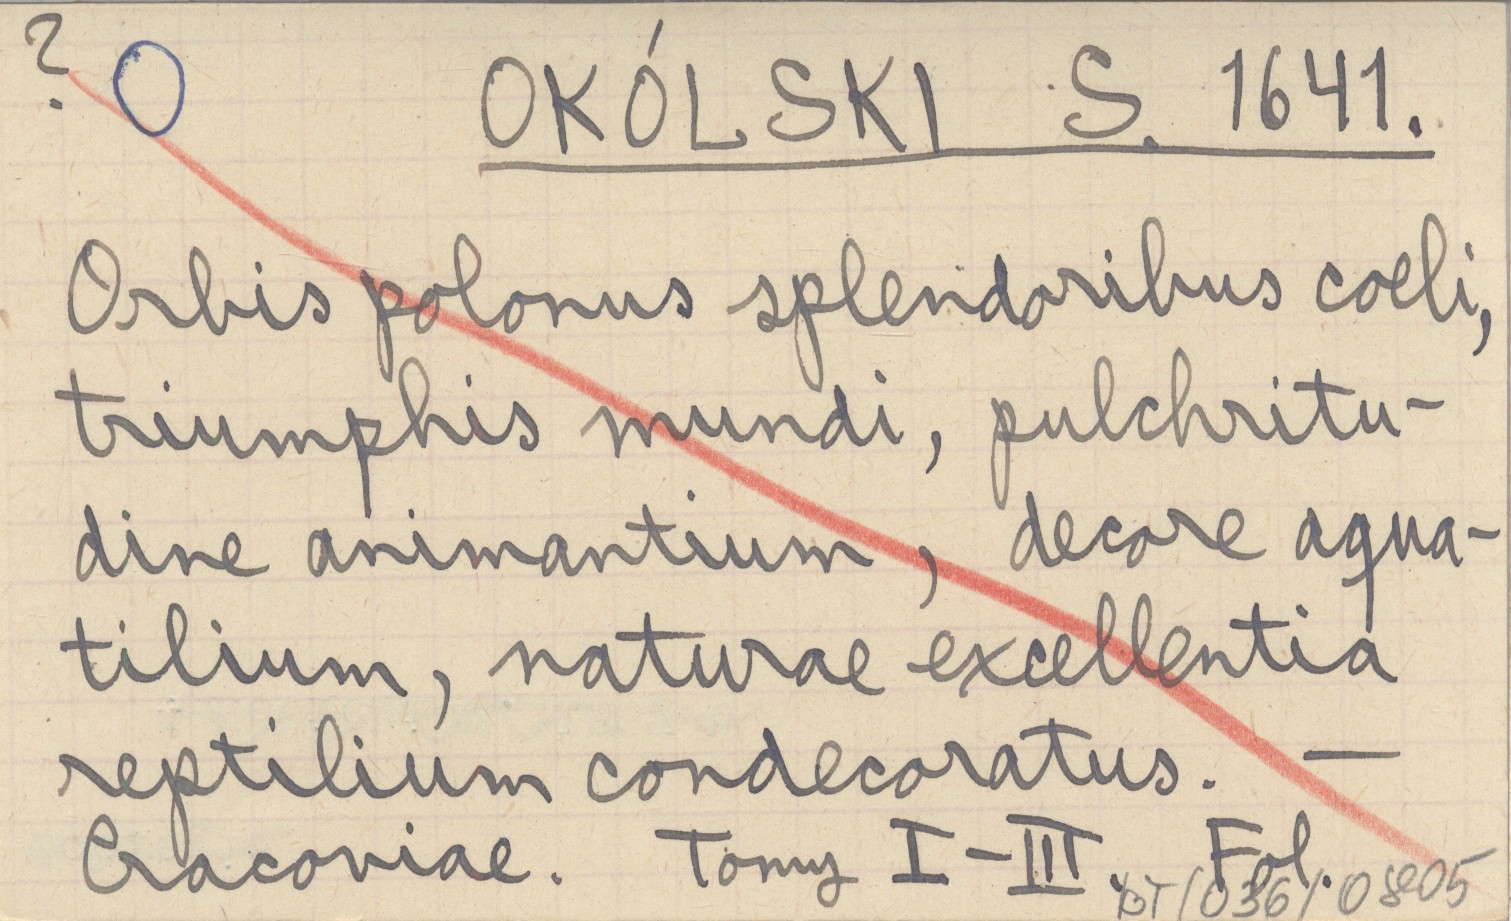 ? O
OKÓLSKI S. 1641.
Orbis polonus splendoribus coeli,
triumphis mundi, pulchritu-
dine animantium, decore aqua-
tilium, naturae excellentia
reptilium condecoratus. —
Cracoviae. Tomy I-III. Fol.
BT/036/0805